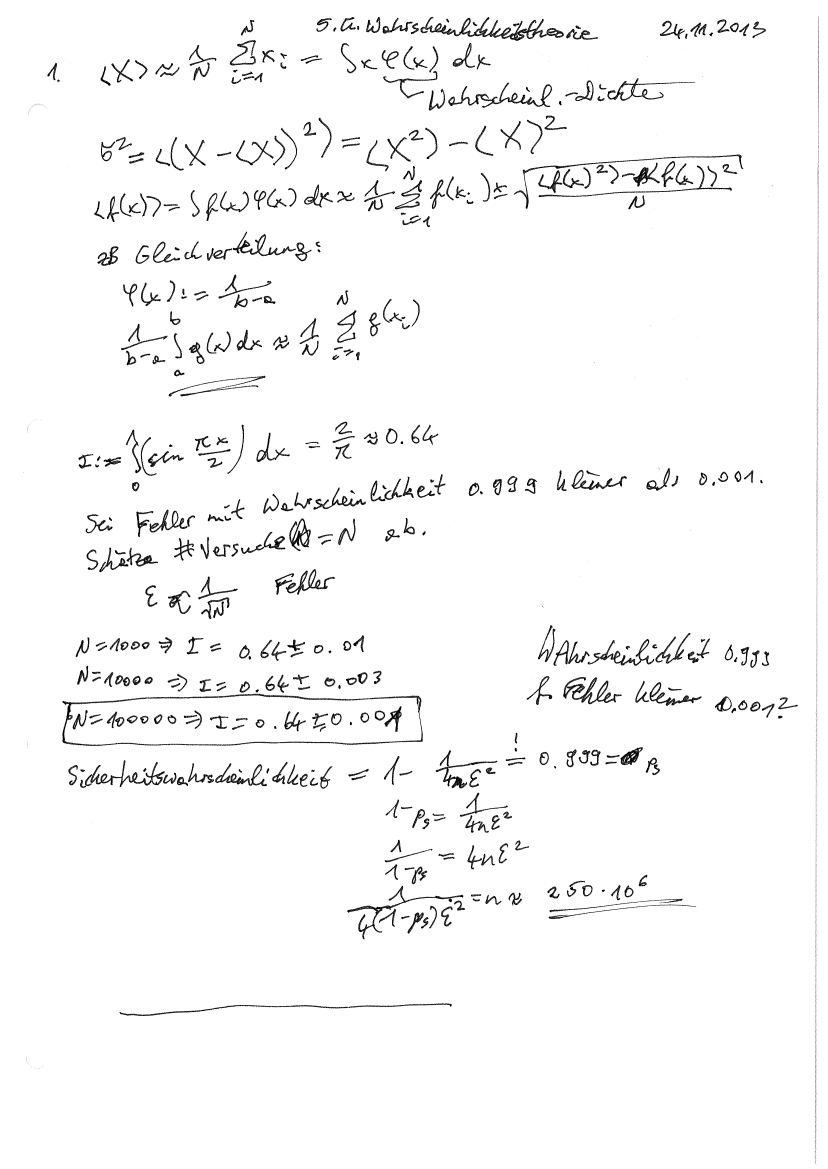 5. Ü. Wahrscheinlichkeitstheorie 24.11.2013
1. ⟨X⟩ ≈ 1/N ∑_{i=1}^{N} x_i = ∫ x φ(x) dx
Wahrscheinl.-Dichte
σ² = ⟨(X - ⟨X⟩)²⟩ = ⟨X²⟩ - ⟨X⟩²
⟨f(x)⟩ = ∫ f(x) φ(x) dx ≈ 1/N ∑_{i=1}^{N} f(x_i) ± √((⟨f(x)²⟩ - ⟨f(x)⟩²)/N)
zB Gleichverteilung:
φ(x) := 1/(b-a)
1/(b-a) ∫_a^b g(x) dx ≈ 1/N ∑_{i=1}^{N} g(x_i)
I := ∫_0^1 (sin πx/2) dx = 2/π ≈ 0.64
Sei Fehler mit Wahrscheinlichkeit 0.999 kleiner als 0.001.
Schätze #Versuche = N ab.
ε ∝ 1/√N Fehler
N=1000 ⇒ I = 0.64 ± 0.01
N=10000 ⇒ I = 0.64 ± 0.003
N=100000 ⇒ I = 0.64 ± 0.001
WAhrscheinlichkeit 0.999
f. Fehler kleiner 0.001?
Sicherheitswahrscheinlichkeit = 1 - 1/(4nε²) =! 0.999 = p_s
1 - p_s = 1/(4nε²)
1/(1-p_s) = 4nε²
1/(4(1-p_s)ε²) = n ≈ 250·10⁶